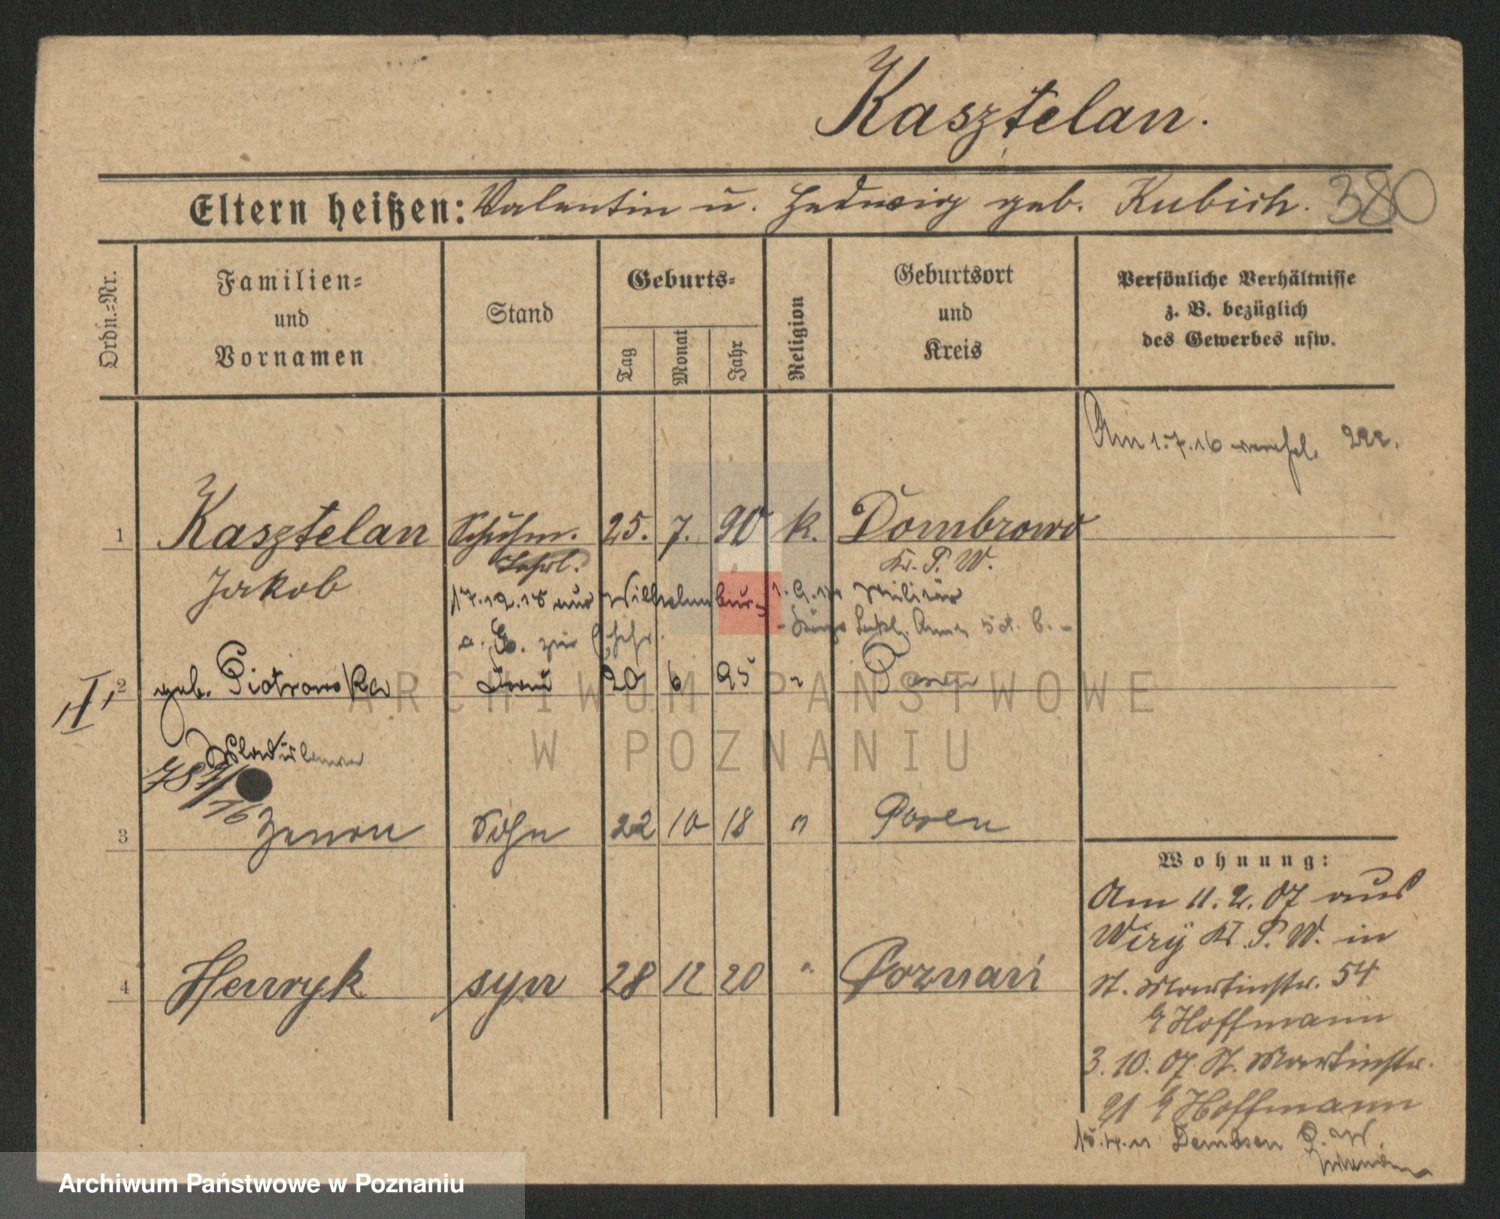 Kasztelan.
Eltern heißen: Valentin u. Hedwig geb. Kubich. 380
Ordn.-Nr.
Familien-
und
Vornamen
Stand
Geburts-
Tag
Monat
Jahr
Religion
Geburtsort
und
Kreis
Persönliche Verhältnisse
z. B. bezüglich
des Gewerbes usw.
Am 1.7.16
1 Kasztelan Schuhm. 25. 7. 90 k. Dombrowo
Lehrl. Kr. P. W.
Jakob
17.12.15 aus Wilhelmsburg Militär
2 geb. Piotrowska Frau 20 6 95 " Posen
II
787/16
3 Zenon Sohn 22 10 18 " Posen
4 Henryk syn 28 12 20 " Poznań
Wohnung:
Am 11. 2. 07 aus
Wiry Kr. P. W. in
St. Martinstr. 54
b/ Hoffmann
3. 10. 07 St. Martinstr.
21 b/ Hoffmann
Dembsen P. W.
ARCHIWUM PAŃSTWOWE
W POZNANIU
Archiwum Państwowe w Poznaniu